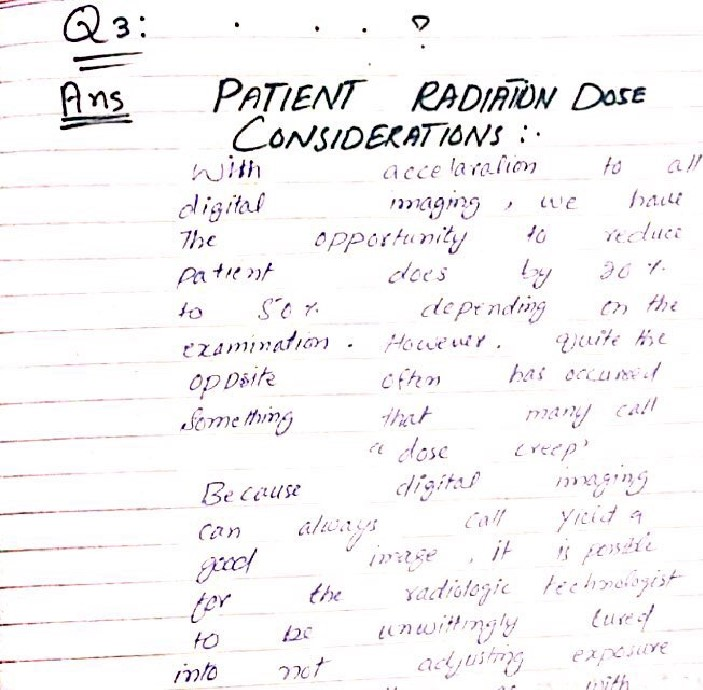 Q3: . . . ?
Ans PATIENT RADIATION DOSE
CONSIDERATIONS :.
With accelaration to all
digital imaging, we have
The opportunity to reduce
patient does by 20 %
to 50 % depending on the
examination. However. quite the
oppsite often has occurred
Something that many call
"dose creep"
Because digital imaging
can always call yield a
good image, it is possible
for the radiologic technologist
to be unwittingly lured
into not adjusting exposure
with